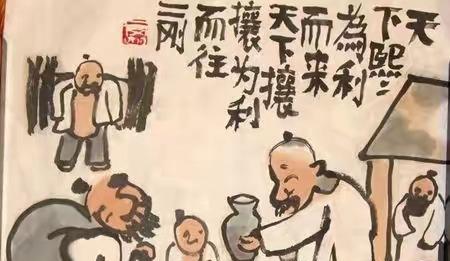 天
下熙〻
為利
而来
天下攘
攘为利
而往
二刚